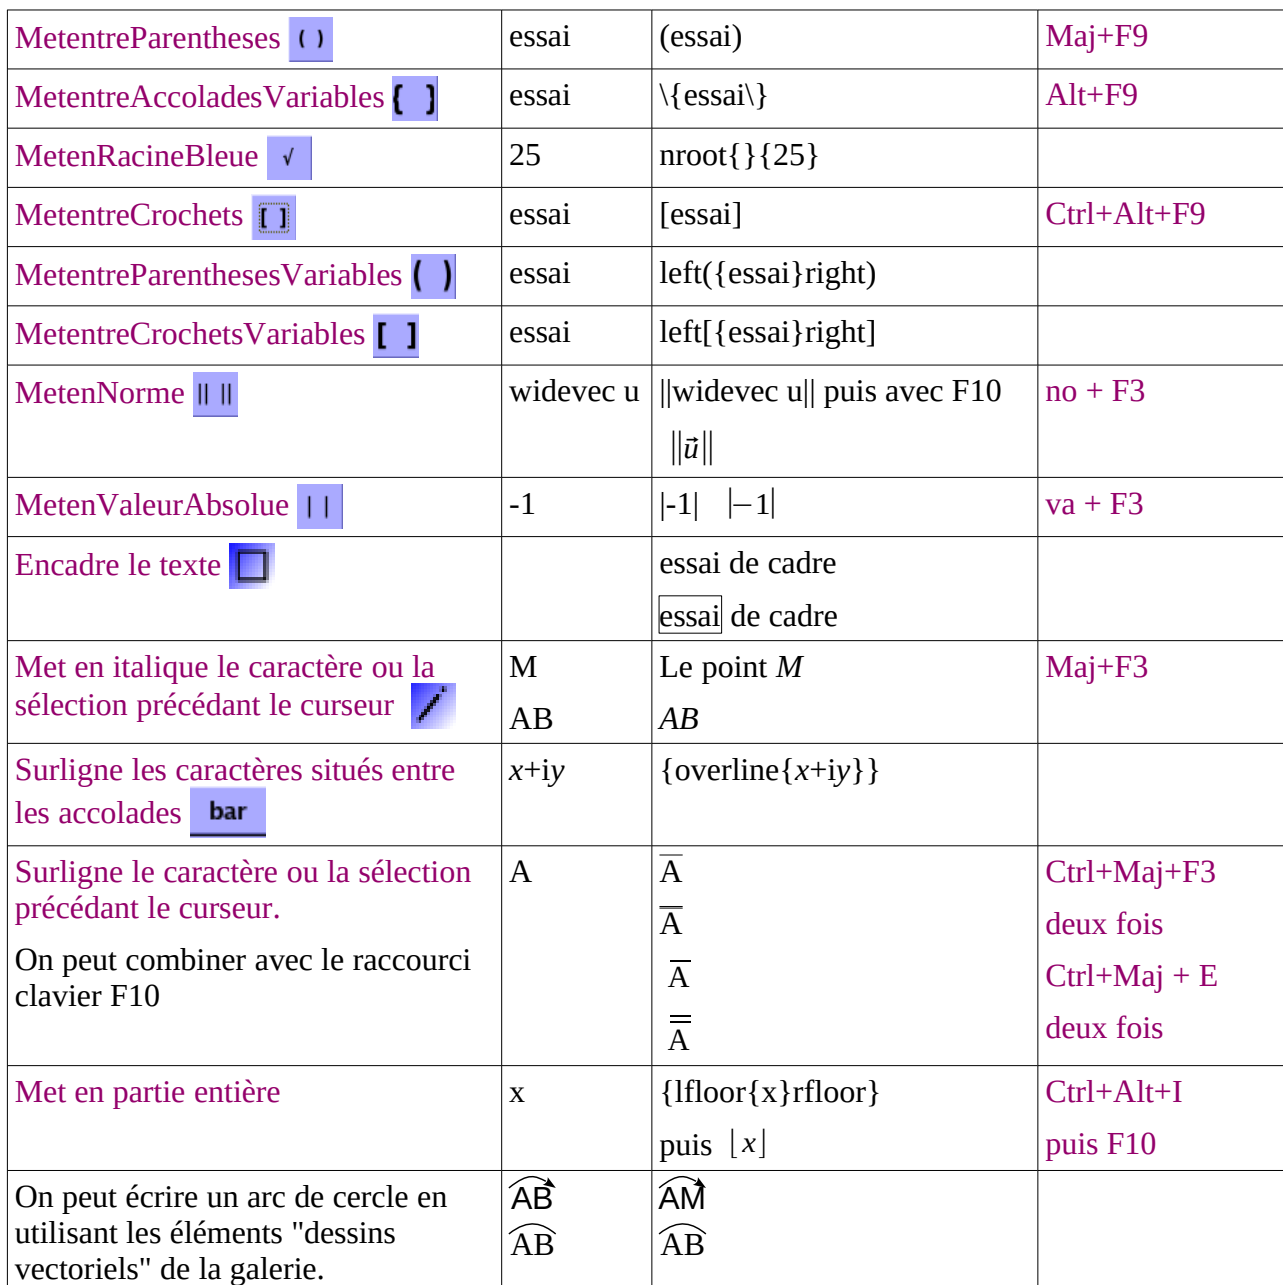 MetentreParentheses ( ) essai (essai) Maj+F9
MetentreAccoladesVariables { ] essai \{essai\} Alt+F9
MetenRacineBleue √ 25 nroot{}{25}
MetentreCrochets [ ] essai [essai] Ctrl+Alt+F9
MetentreParenthesesVariables ( ) essai left({essai}right)
MetentreCrochetsVariables [ ] essai left[{essai}right]
MetenNorme || || widevec u ||widevec u|| puis avec F10 no + F3
‖u⃗‖
MetenValeurAbsolue | | -1 |-1| |−1| va + F3
Encadre le texte essai de cadre
essai de cadre
Met en italique le caractère ou la M Le point M Maj+F3
sélection précédant le curseur AB AB
Surligne les caractères situés entre x+iy {overline{x+iy}}
les accolades bar
Surligne le caractère ou la sélection A A̅ Ctrl+Maj+F3
précédant le curseur. A̿ deux fois
On peut combiner avec le raccourci A̅ Ctrl+Maj + E
clavier F10 A̿ deux fois
Met en partie entière x {lfloor{x}rfloor} Ctrl+Alt+I
puis ⌊x⌋ puis F10
On peut écrire un arc de cercle en AB AM
utilisant les éléments "dessins AB AB
vectoriels" de la galerie.